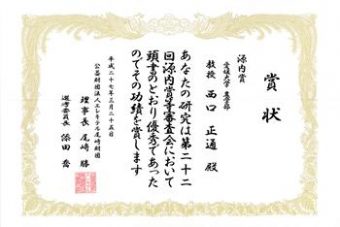 賞状
源内賞
愛媛大学 農学部
教授 西口 正通 殿
あなたの研究は第二十二
回源内賞等審査会において
頭書のとおり優秀であった
のでその功績を賞します
平成二十七年三月二十五日
公益財団法人エレキテル尾崎財団
理事長 尾崎 勝
選考委員長 保田 喬